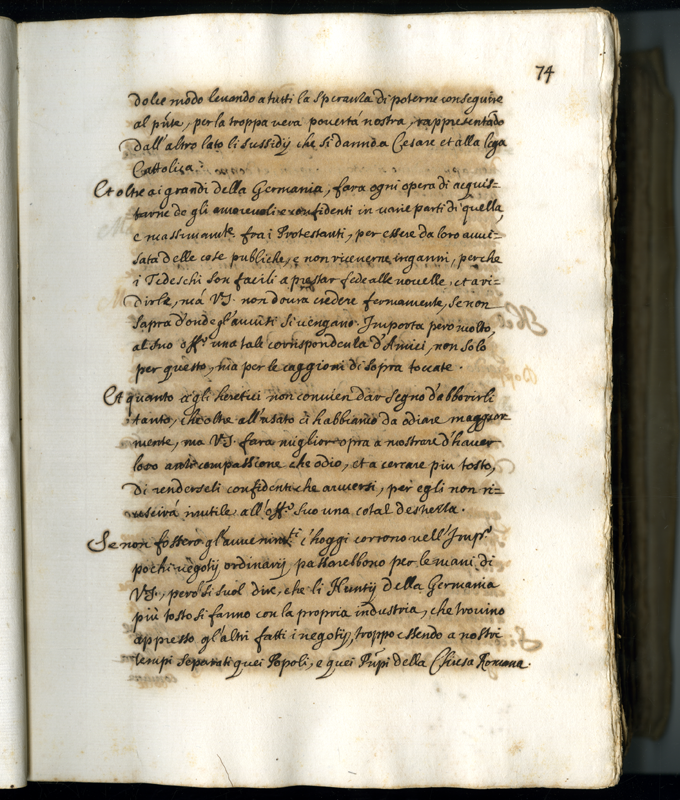 74
dolce modo leuando a tutti la speranza di poterne conseguire
al pnte, per la troppa vera pouertà nostra, rappresentado
dall'altro lato li sussidij che si danno a Cesare et alla lega
Cattolica.
Et oltre ai grandi della Germania, fara ogni opera di acquis=
tarne de gli amoreuoli e confidenti in varie parti di quella,
e massimamte. fra i Protestanti, per essere da loro auui=
sata delle cose publiche, e non riceuerne inganni, perche
i Tedeschi son facili a prestar fede alle nouelle, et a ri=
dirle, ma V.S. non doura credere fermamente, se non
saprà d'onde gl'auuisi si uengano. Importa però molto,
al suo offo. una tale corrispondenza d'Amici, non solo
per questo, ma per le caggioni di sopra toccate.
Et quanto a gli heretici non conuien dar segno d'abborirli
tanto, che oltre all'usato ci habbiano da odiare maggior
mente, ma V.S. fara miglior opra a mostrare d'hauer
loro anzi compassione che odio, et a cercare piu tosto,
di renderseli confidenti che auuersi, per egli non ri=
uscirà inutile all'offo. suo una cotal destrezza.
Se non fossero gl'auuenimti. c'hoggi corrono nell'Impo.
pochi negotij ordinarij passarebbono per le mani di
V.S., però si suol dire, che li Nuntij della Germania
più tosto si fanno con la propria industria, che trouino
appresso gl'altri fatti i negotij, troppo essendo a nostri
tempi separati quei Popoli, e quei Pnpi della Chiesa Romana.